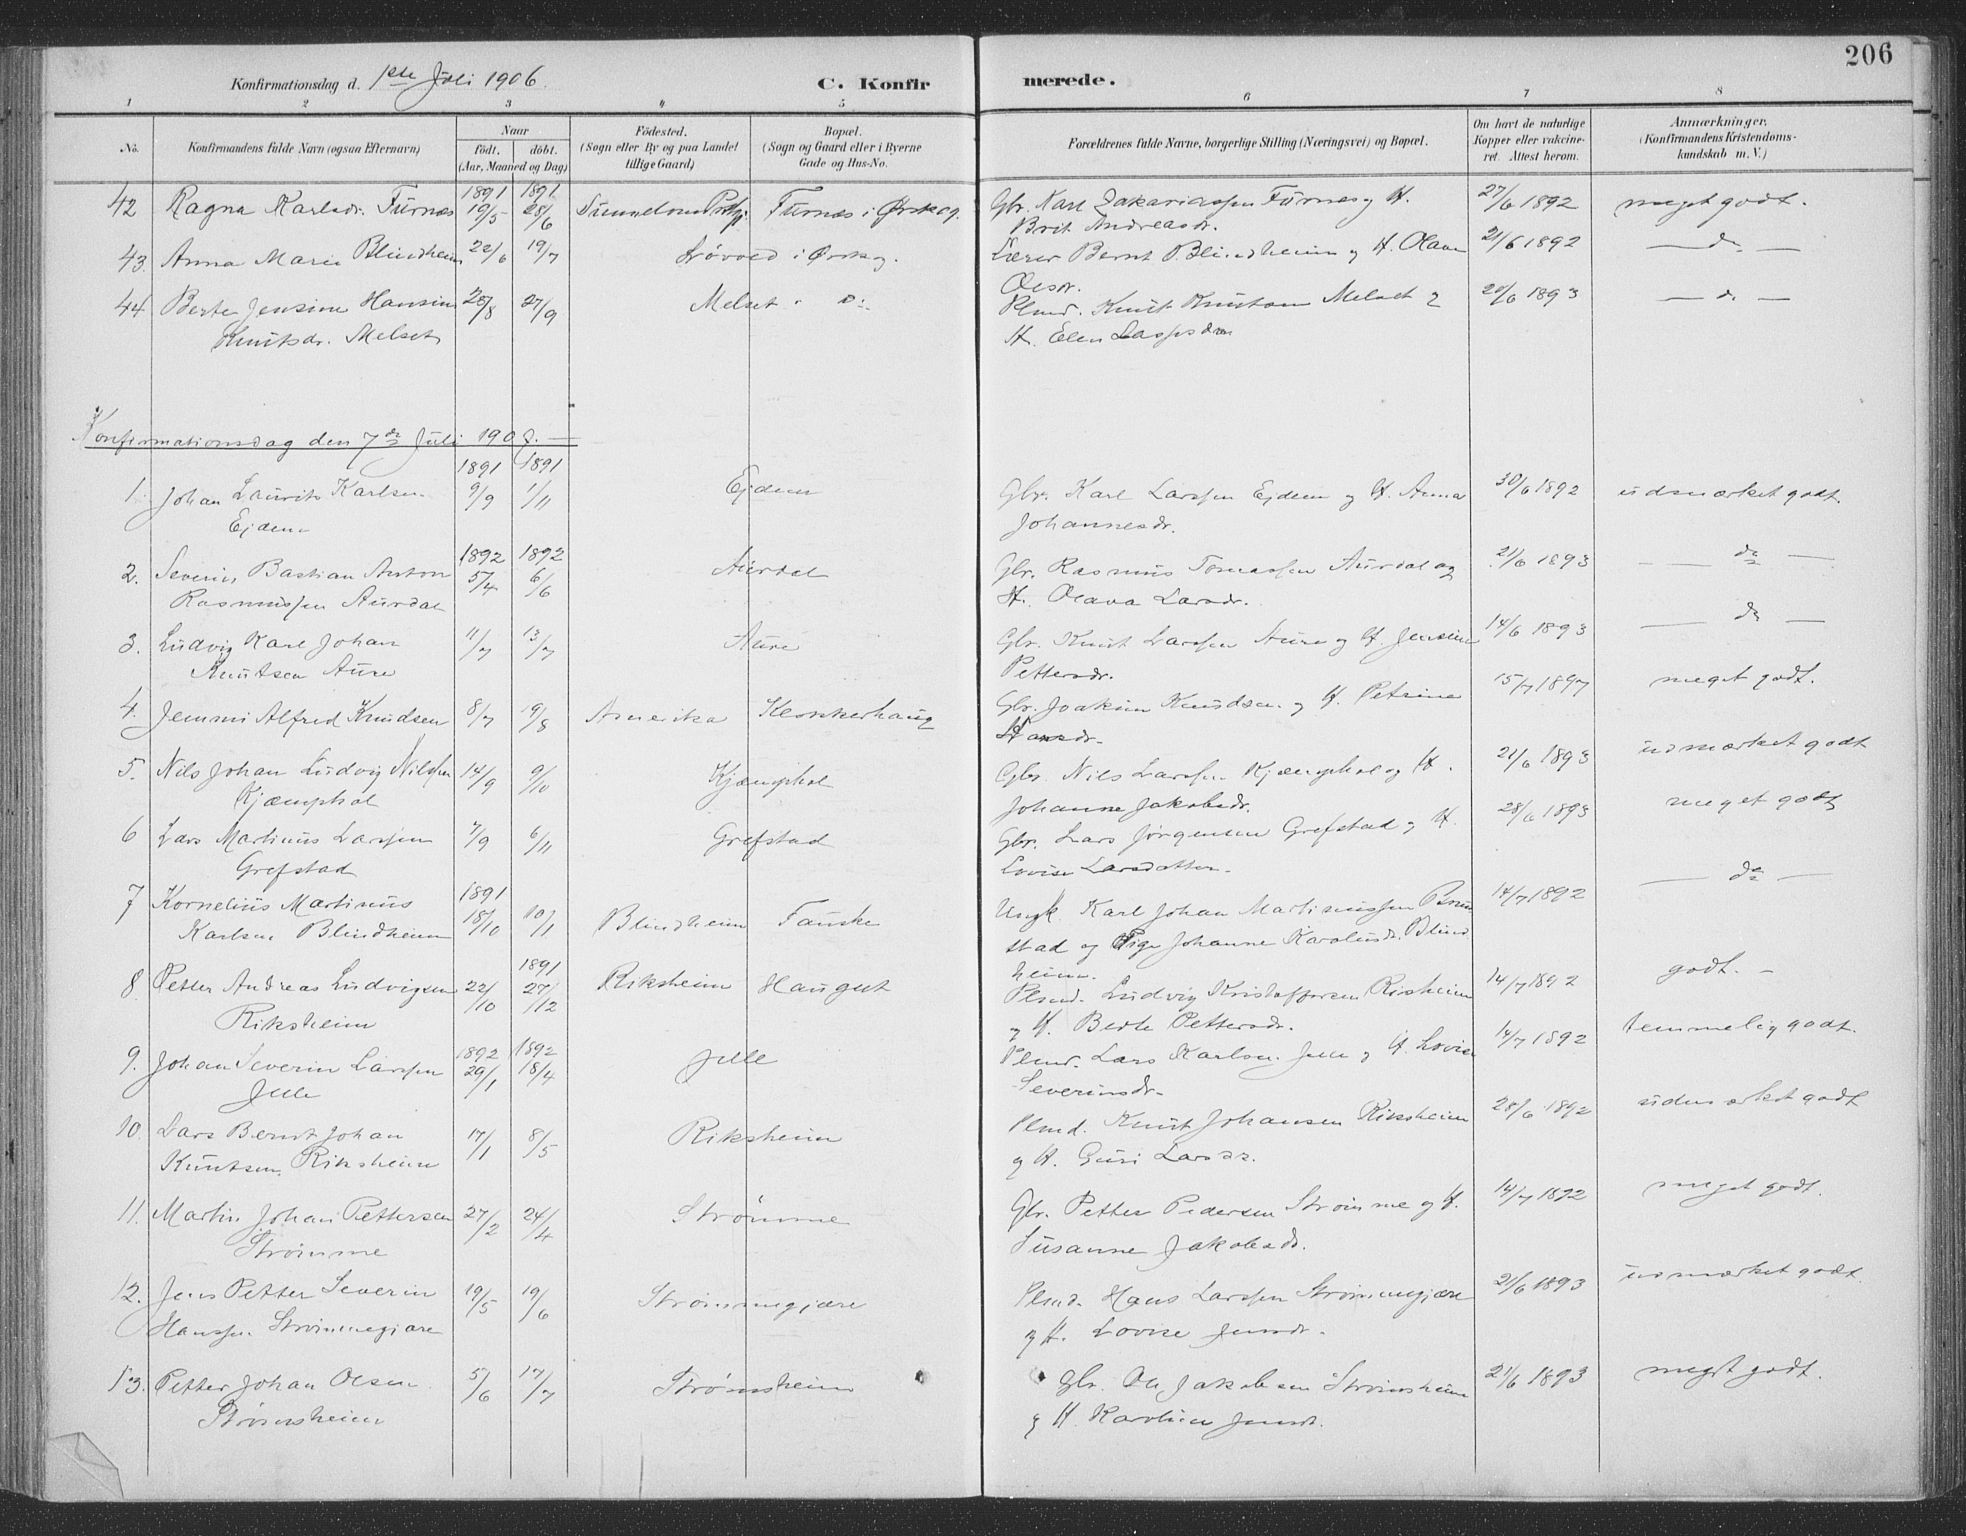 206
Konfirmationsdag d. 1ste Juli 1906. C. Konfirmerede.
1 2 3 4 5 6 7 8
No. Konfirmandens fulde Navn (ogsaa Efternavn) Naar født. døbt. (Aar, Maaned og Dag) Fødested. (Sogn eller By og paa Landet tillige Gaard) Bopæl. (Sogn og Gaard eller i Byerne Gade og Hus-No. Forældrenes fulde Navne, borgerlige Stilling (Næringsvei) og Bopæl. Om havt de naturlige Kopper eller vakcineret. Attest herom. Anmærkninger. (Konfirmandens Kristendomskundskab m. V.)
1891 1891
42 Ragna Karlsdr. Furnæs 19/5 28/6 Furnæs i Ørskog. Gbr. Karl Zakariassen Furnæs og H. 27/6 1892 meget godt.
Brit Andreasdr.
43. Anna Marie Blindheim 22/6 19/7 Løvold i Ørskog. Lærer Bernt Blindheim og H. Olava 21/6 1892 — do —
Olsdr.
44. Berte Jensine Hansine 28/8 27/9 Melset i do: Plmd. Knut Knutsen Melset og 1893 — do —
Knutsdr. Melset H. Elen Lassesdr.
Konfirmationsdag den 7de Juli 1907. —
1891 1891
1. Johan Laurits Karlsen 9/9 1/11 Ejdem Gbr. Karl Larssen Ejdem og H. Anna 30/6 1892 udmærket godt.
Ejdem Johannesdr.
1892 1892
2. Severin Bastian Anton 5/4 6/6 Aurdal Gbr. Rasmus Tomassen Aurdal og 21/6 1893 — do —
Rasmussen Aurdal H. Olava Larsdr.
3. Ludvig Karl Johan 11/7 13/7 Aure Gbr. Knut Larssen Aure og H. Jensine 14/6 1893 — do —
Knutsen Aure Pettersdr.
4. Jemmi Alfred Knudsen 8/7 19/8 Amerika Klokkerhaug Gbr. Joakim Knudsen og H. Petrine 15/7 1897 meget godt.
Hansdr.
5. Nils Johan Ludvig Nilssen 14/9 9/10 Kjæmphol Gbr. Nils Larssen Kjæmphol og H. 21/6 1893 udmærket godt
Kjæmphol Johanne Jakobsdr.
6 Lars Martinus Larssen 7/9 6/11 Grefstad Gbr. Lars Jørgensen Grefstad og H. 28/6 1893 meget godt
Grefstad Lovise Larsdatter.
1891
7 Kornelius Martinus 18/10 10/1 Blindheim Fauske Ungk. Karl Johan Martinussen Brun 14/7 1892 — do —
Karlsen Blindheim stad og Pige Johanne Karolusdr. Blind
heim.
1891
8. Petter Andreas Ludvigsen 22/10 27/12 Riksheim Hauget Plmd. Ludvig Kristoffersen Riksheim 14/7 1892 godt. —
Riksheim og H. Berte Pettersdr.
1892 1892
9. Johan Severin Larssen 29/1 18/4 Jelle Plmd. Lars Karlsen Jelle og H. Lovise 14/7 1892 temmelig godt.
Jelle Severinsdr.
10. Lars Bernt Johan 17/1 8/5 Riksheim Plmd. Knut Johansen Riksheim 28/6 1892 udmærket godt
Knutsen Riksheim og H. Guri Larsdr.
11. Martin Johan Pettersen 27/2 24/4 Strømme Gbr. Petter Pedersen Strømme og H. 14/7 1892 meget godt.
Strømme Susanne Jakobsdr.
12. Jens Petter Severin 19/5 19/6 Strømmegjære Plmd. Hans Larssen Strømmegjære 21/6 1893 udmærket godt
Hanssen Strømmegjære og H. Lovise Jensdr.
13. Petter Johan Olsen 5/6 17/7 Strømsheim Gbr. Ole Jakobsen Strømsheim 21/6 1893 meget godt.
Strømsheim og H. Karoline Jensdr.